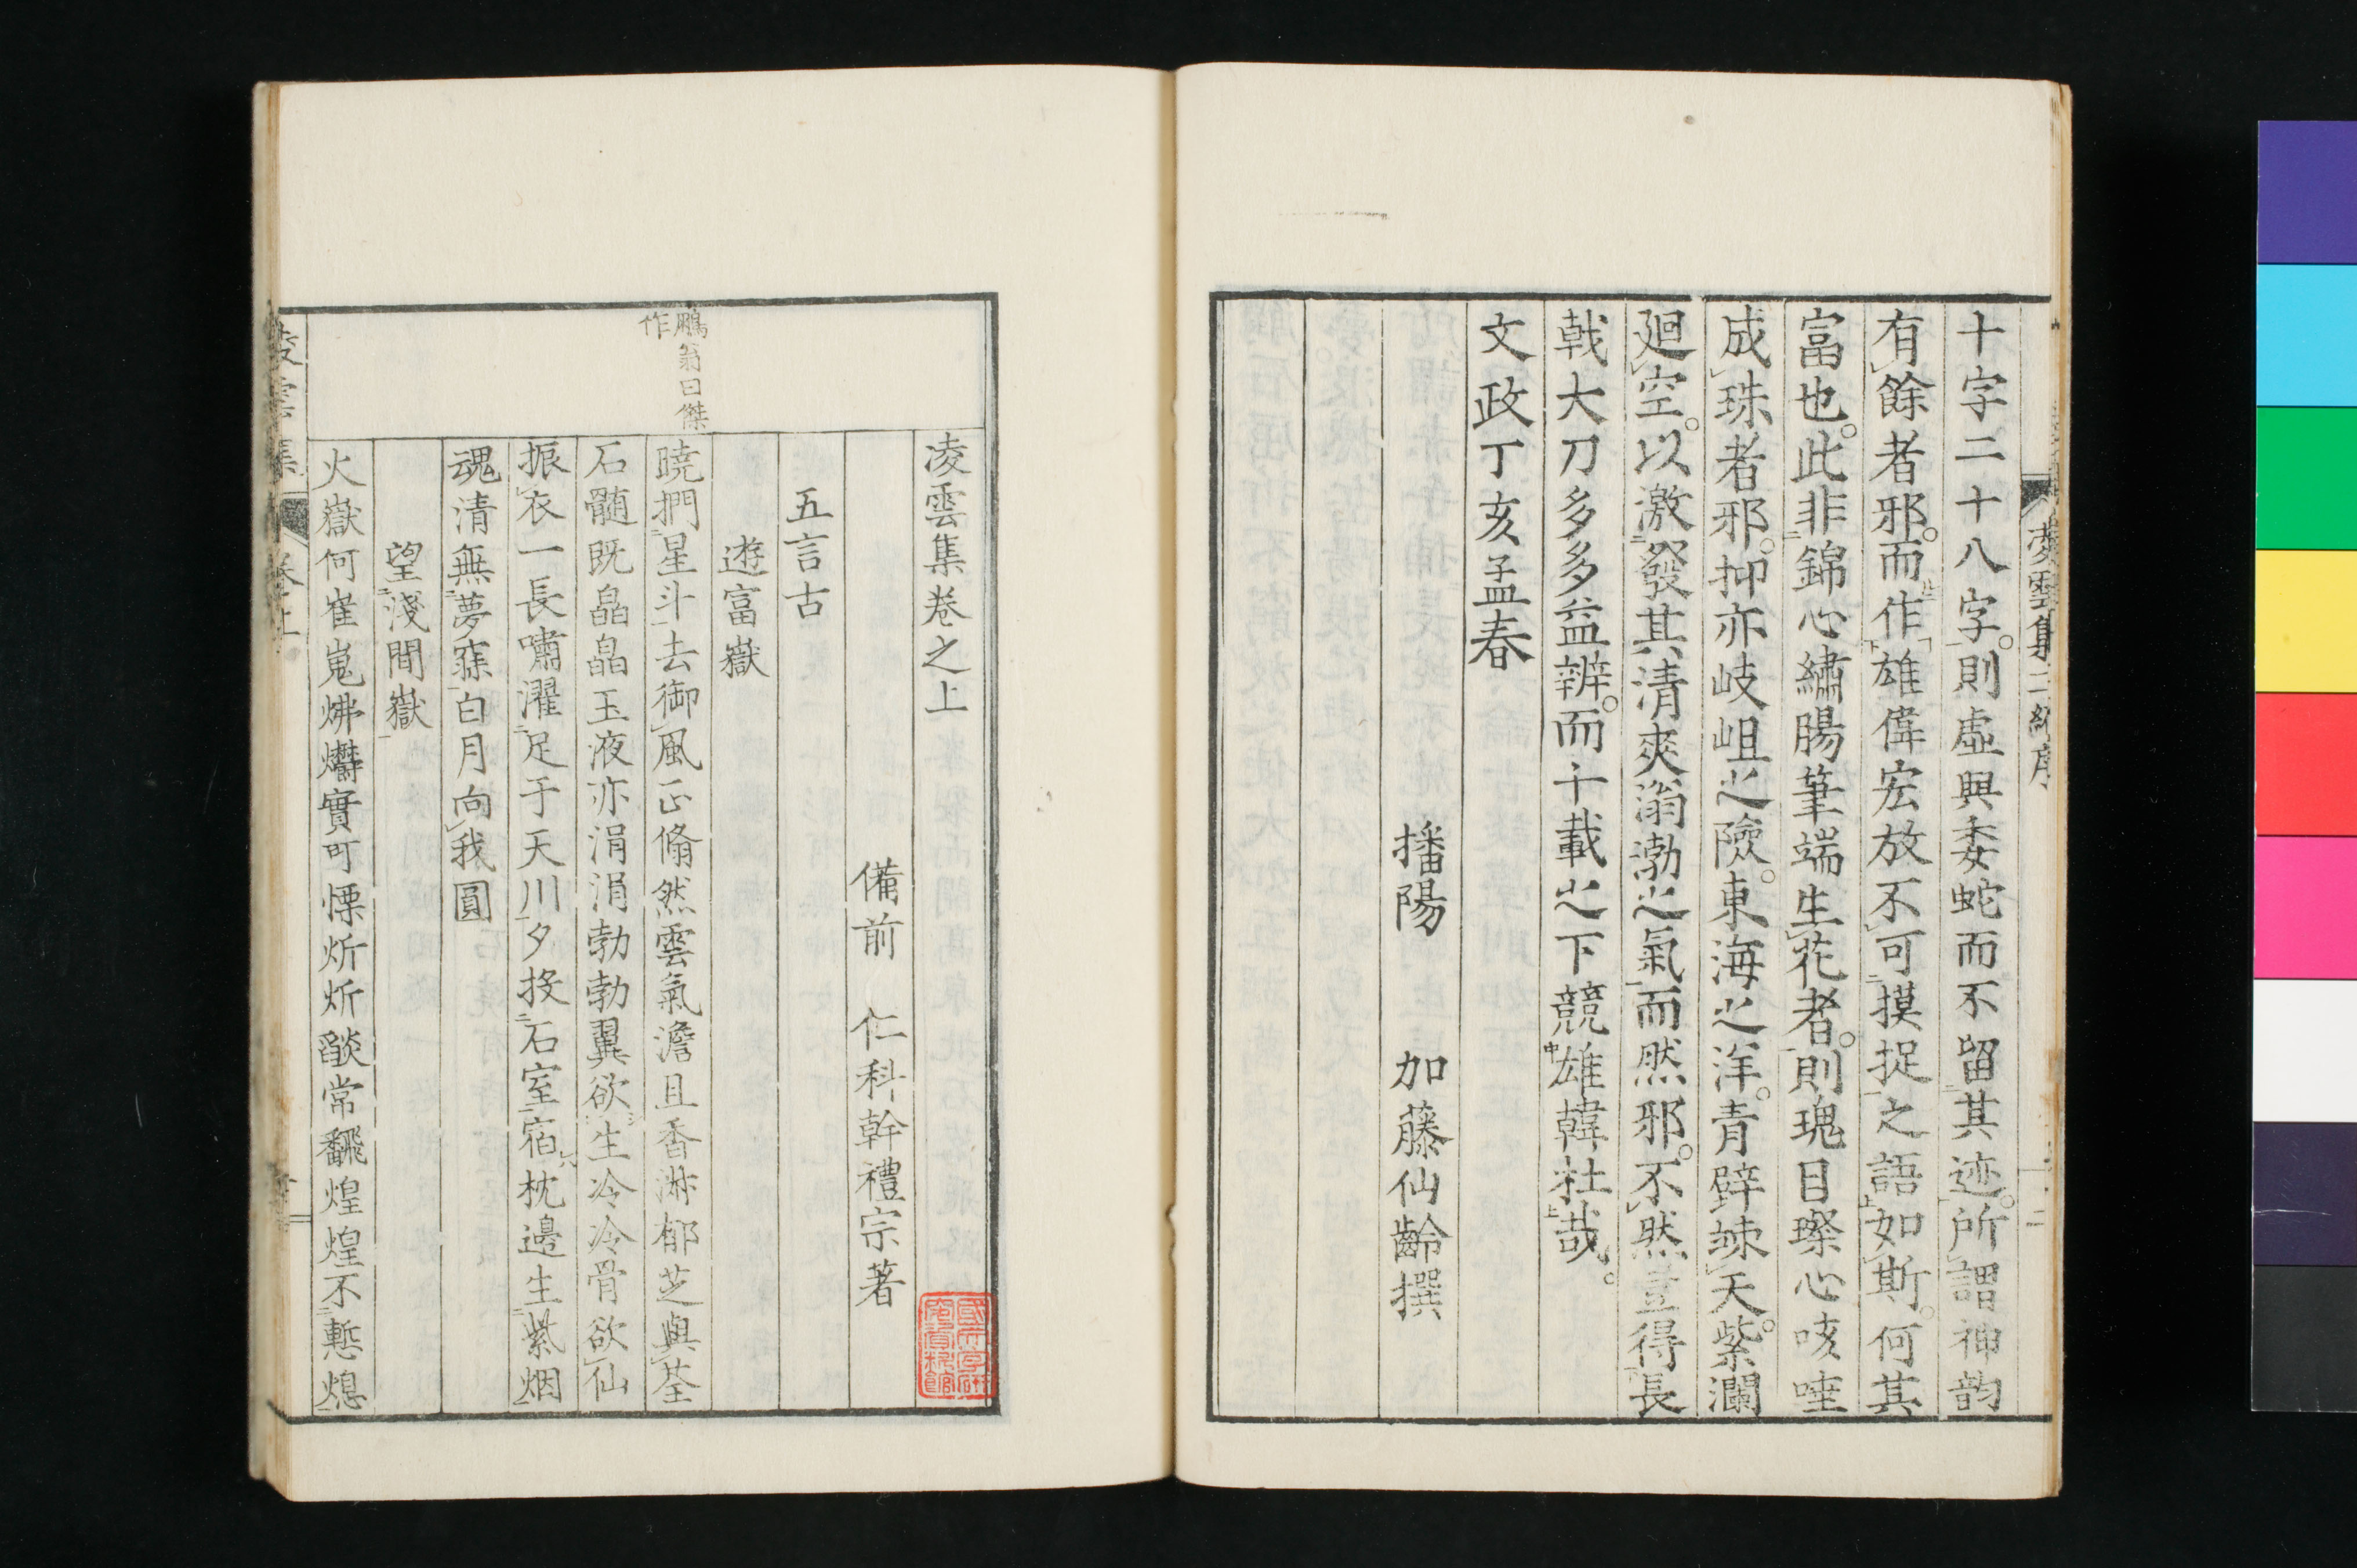 十字二十八字。則虛與委蛇而不留其迹。所謂神韵
有餘者邪。而作雄偉宏放不可摸捉之語如斯。何其
富也。此非錦心繡腸筆端生花者。則瑰目璨心咳唾
成珠者邪。抑亦岐岨之險。東海之洋。青壁竦天。紫瀾
廻空。以激發其清爽滃渤之氣而然邪。不然豈得長
戟大刀多多益辨。而千載之下競雄韓杜哉。
文政丁亥孟春
播陽　加藤仙齡撰
凌雲集二編序
二
凌雲集卷之上
備前　仁科幹禮宗著
五言古
遊富嶽
鵬翁曰傑
作
曉捫星斗去御風正翛然雲氣澹且香淋郁芝與荃
石髓既皛皛玉液亦涓涓勃勃翼欲生冷冷骨欲仙
振衣一長嘯濯足于天川夕投石室宿枕邊生紫烟
魂清無夢寐白月向我圓
望淺間嶽
火嶽何崔嵬炥爩實可慄炘炘燄常飜煌煌不慙熄
凌雲集
卷上